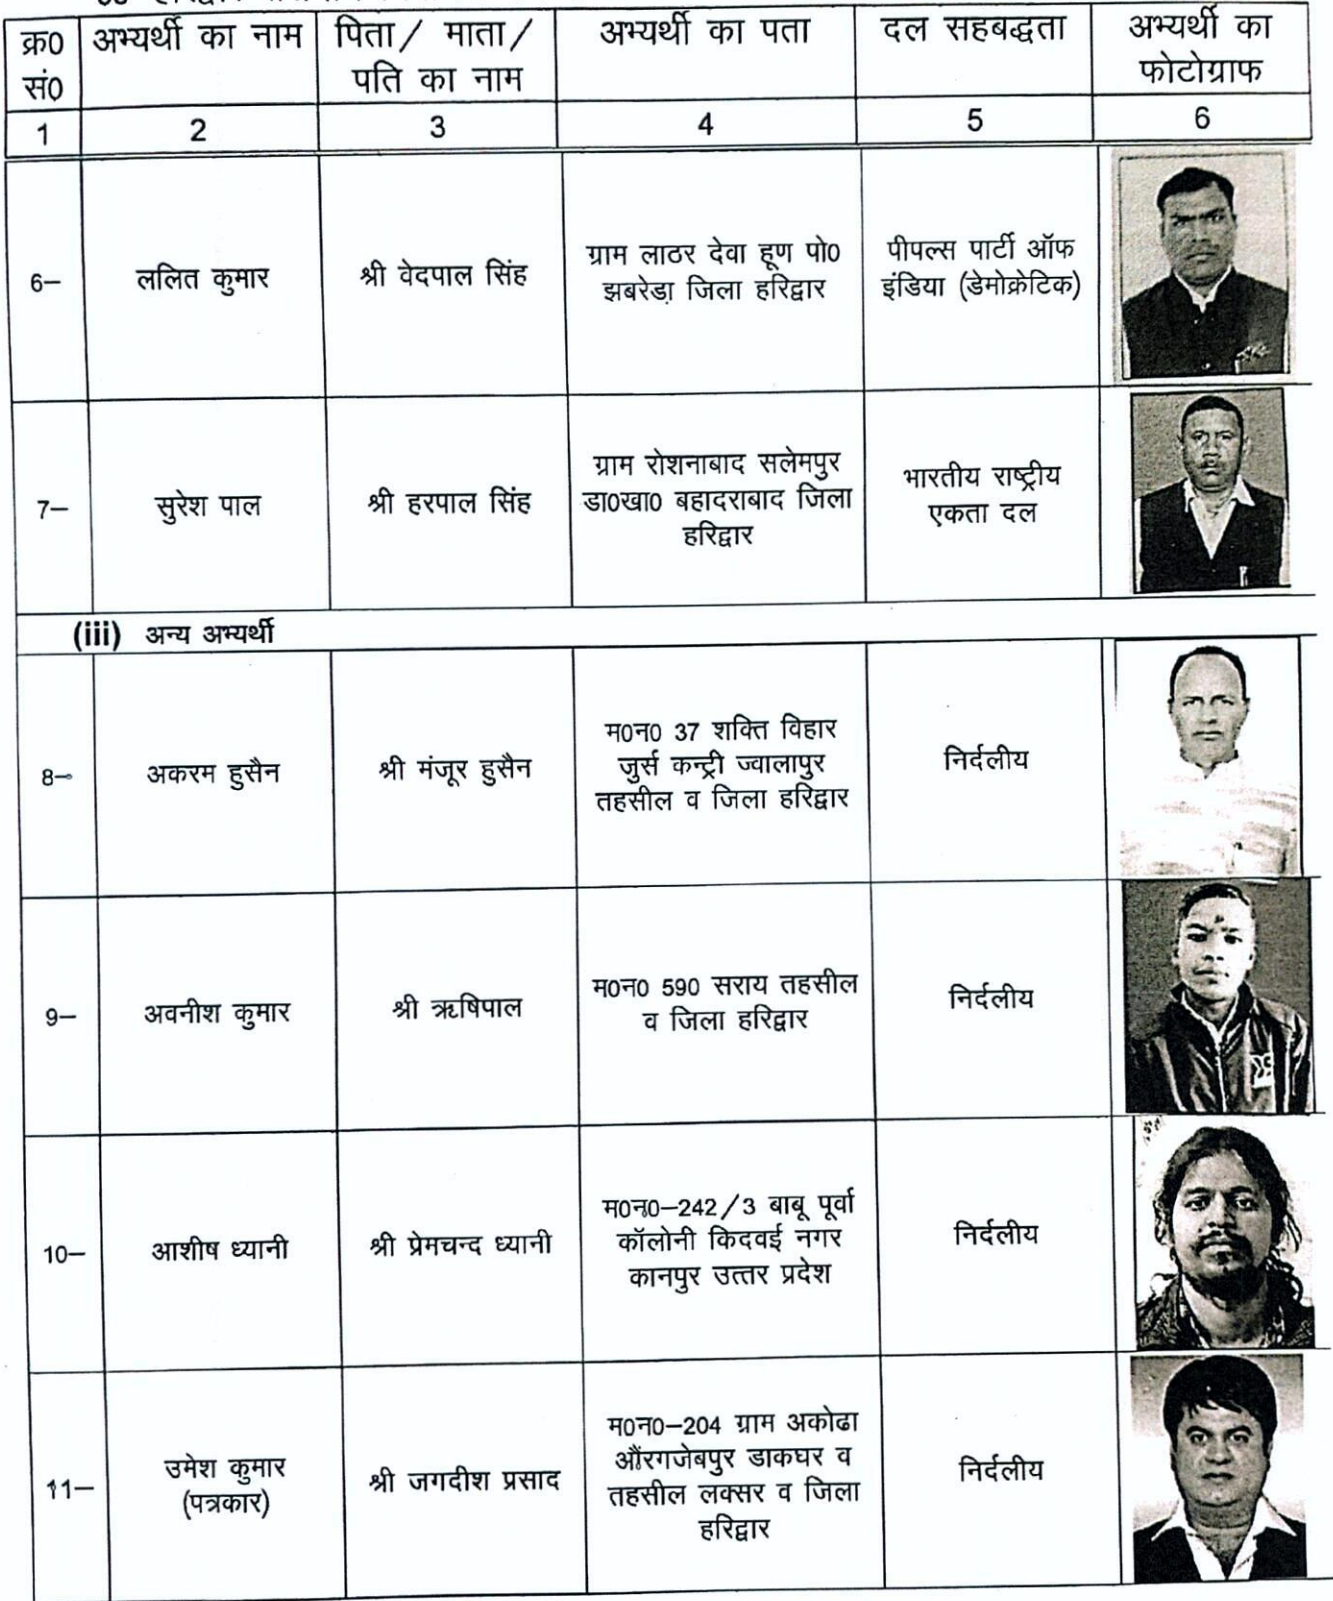 क्र0 अभ्यर्थी का नाम पिता/ माता/ अभ्यर्थी का पता दल सहबद्धता अभ्यर्थी का
सं0 पति का नाम फोटोग्राफ
1 2 3 4 5 6
6– ललित कुमार श्री वेदपाल सिंह
ग्राम लाठर देवा हूण पो0
झबरेडा़ जिला हरिद्वार
पीपल्स पार्टी ऑफ
इंडिया (डेमोक्रेटिक)
7– सुरेश पाल श्री हरपाल सिंह
ग्राम रोशनाबाद सलेमपुर
डा0खा0 बहादराबाद जिला
हरिद्वार
भारतीय राष्ट्रीय
एकता दल
(iii) अन्य अभ्यर्थी
8– अकरम हुसैन श्री मंजूर हुसैन
म0न0 37 शक्ति विहार
जुर्स कन्ट्री ज्वालापुर
तहसील व जिला हरिद्वार
निर्दलीय
9– अवनीश कुमार श्री ऋषिपाल
म0न0 590 सराय तहसील
व जिला हरिद्वार
निर्दलीय
10– आशीष ध्यानी श्री प्रेमचन्द ध्यानी
म0न0–242/3 बाबू पूर्वा
कॉलोनी किदवई नगर
कानपुर उत्तर प्रदेश
निर्दलीय
11– उमेश कुमार
(पत्रकार)
श्री जगदीश प्रसाद
म0न0–204 ग्राम अकोढा
औंरगजेबपुर डाकघर व
तहसील लक्सर व जिला
हरिद्वार
निर्दलीय